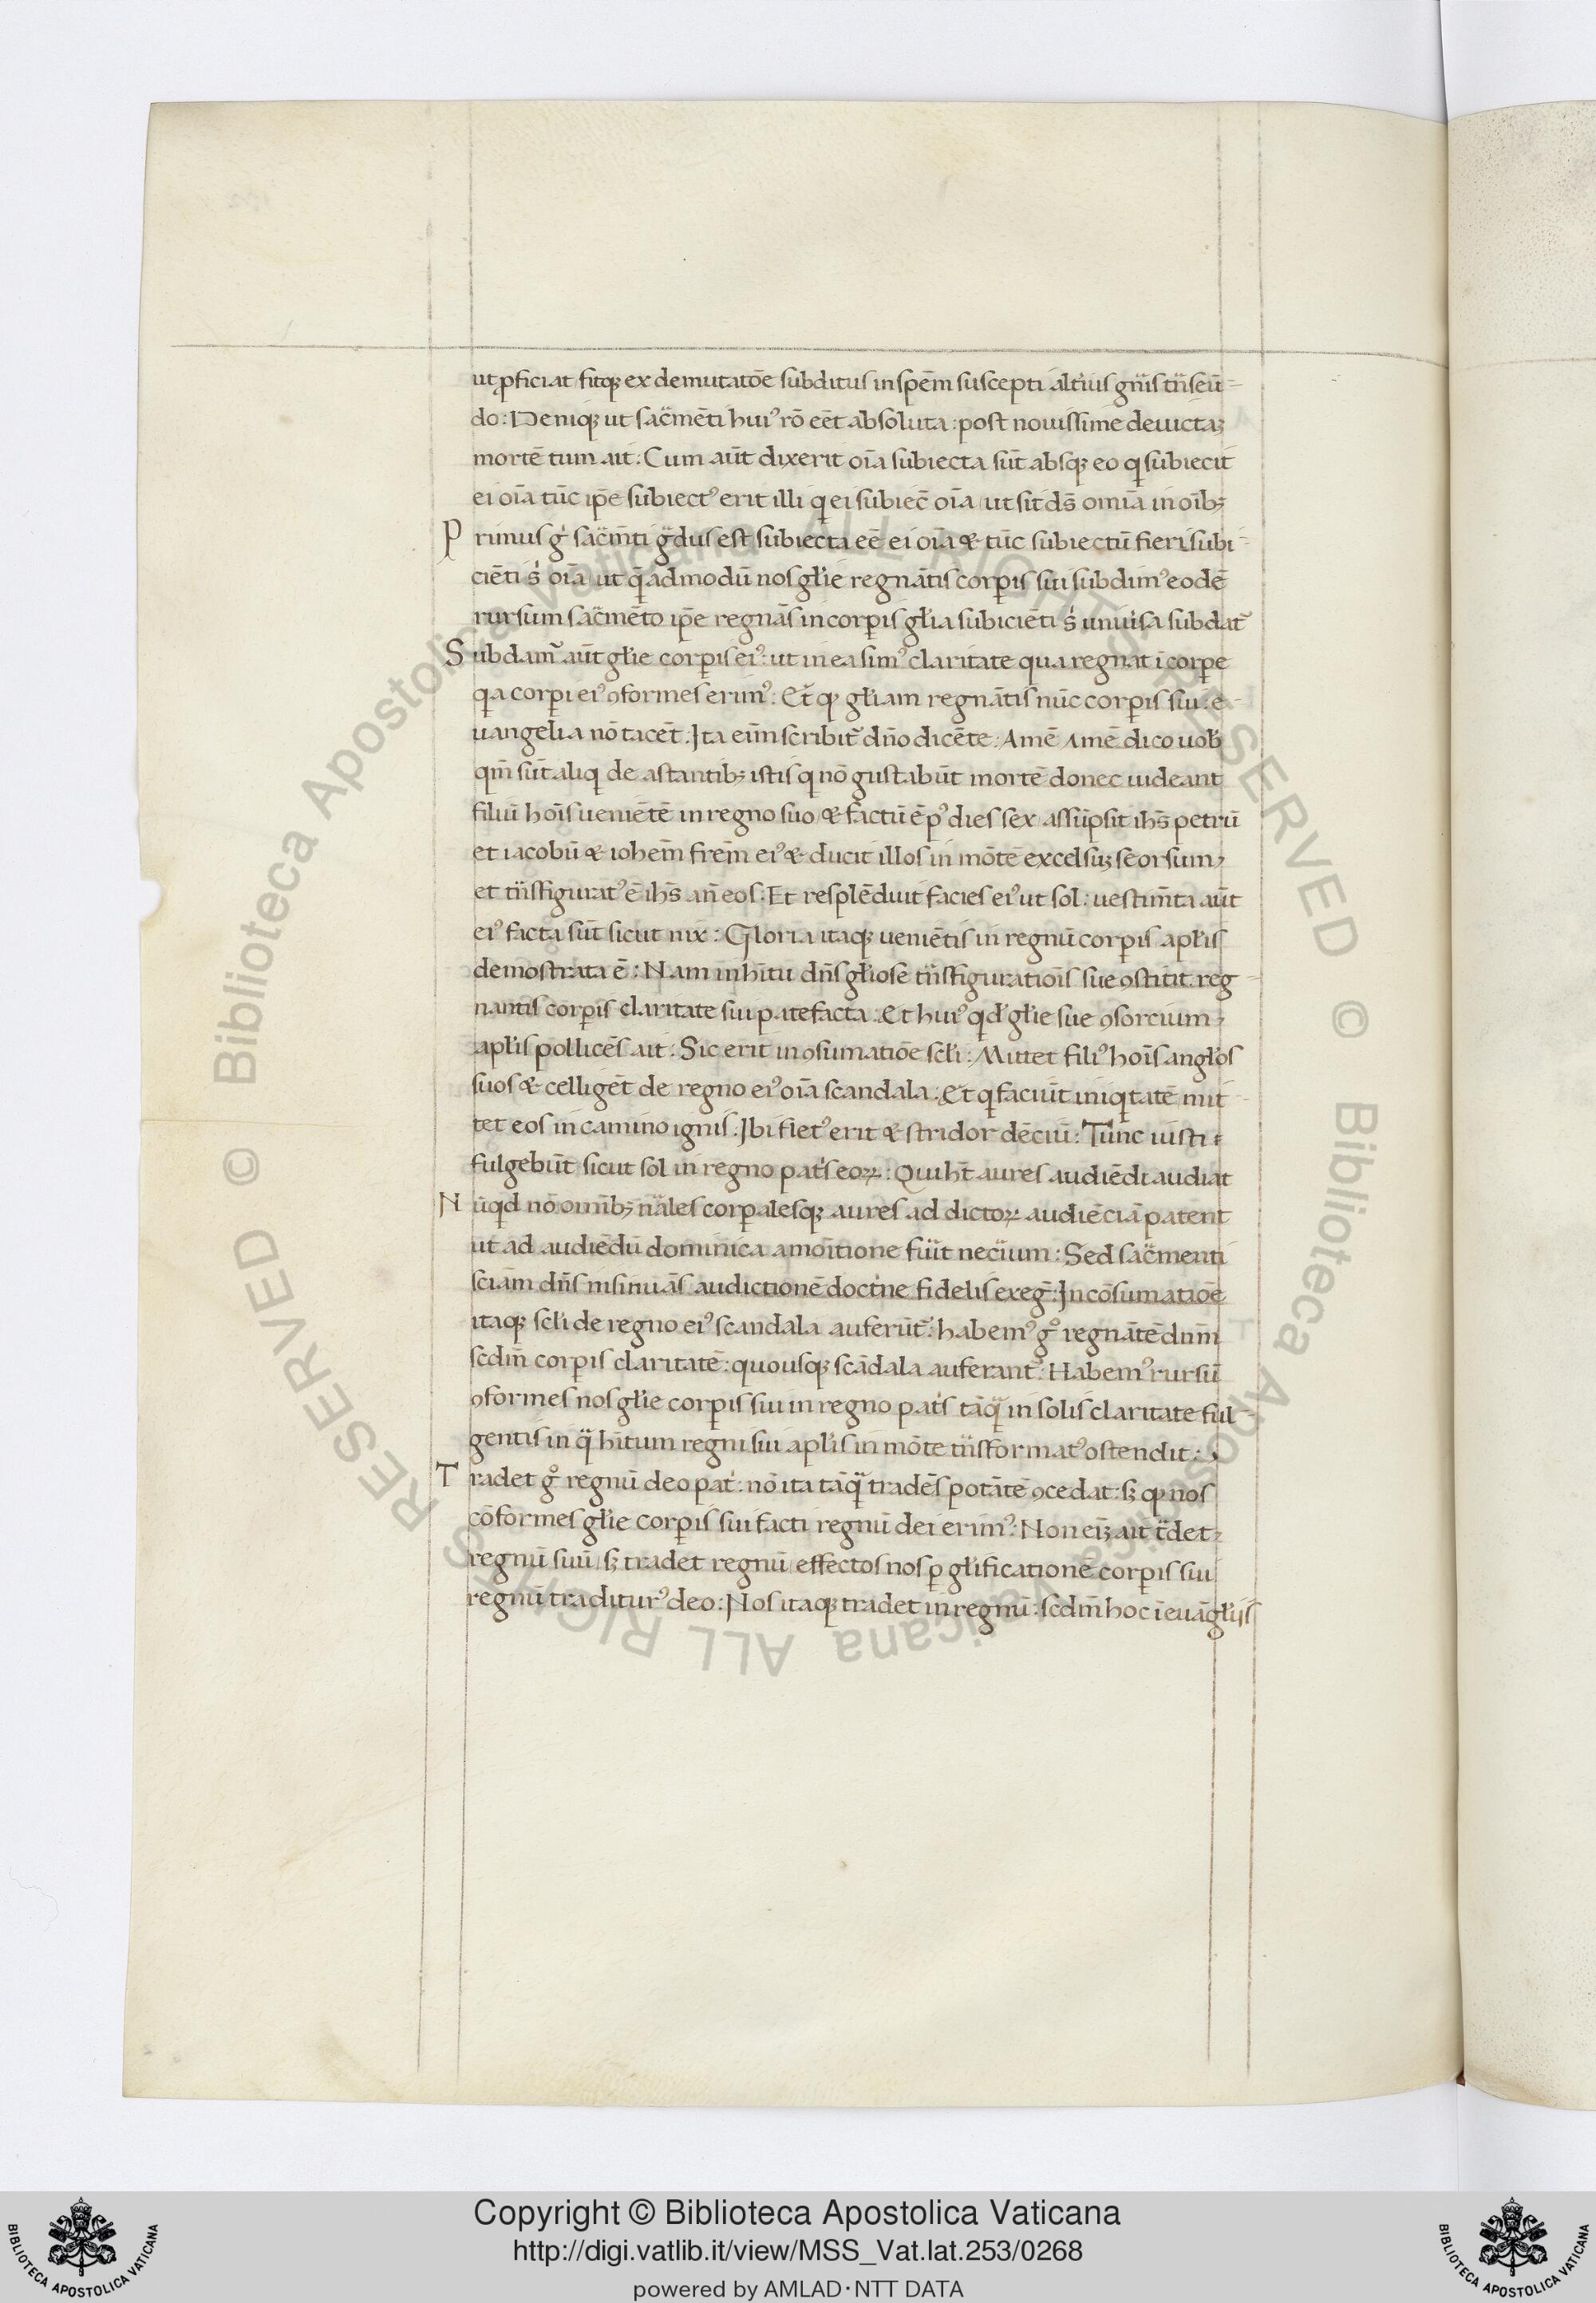 ut ꝓficiat fitqꝫ ex demutatōe subditus in spēm suscepti alt'ius gn̄is tn̄seū-
do: Deniqꝫ ut sac̄mēti hui⁹ rō eēt absoluta: post nouissime deuictaꝫ
mortē tum ait: Cum aūt dixerit oīa subiecta sūt absqꝫ eo q̇ subiecit
ei oīa tūc ip̄e subiect⁹ erit illi q̇ ei subiec̄ oīa ut sit ds̄ omīa in oībꝫ
Primus g̊ sac̄m̄ti g̈dus est subiecta eē ei oīa & tūc subiectū fieri subi-
ciēti s' oīa ut q̄admodū nos gl'ie regnātis corꝑis sui subdim⁹ eodē
rursum sac̄mēto ip̄e regnās in corꝑis gl'ia subiciēti s' uniu'sa subdat̄
Subdam̄ aūt gl'ie corꝑis ei⁹: ut in ea sim⁹ claritate qua regnat ī corꝑe
q̇a corꝑi ei⁹ ꝯformes erim⁹: Et qꝫ gl'iam regnātis nūc corꝑis sui: e-
uangelia nō tacēt: Ita eīm scribit̄ dn̄o dicēte: Amē Amē dico uob'
qm̄ sūt aliq̇ de astantibꝫ istis q̇ nō gustabūt mortē donec uideant
filiū hoīs ueniētē in regno suo & factū ē p⁹ dies sex assūpsit ihs̄ petrū
et iacobū & iohem̄ frēm ei⁹ & ducit illos in mōtē excelsuꝫ seorsum,
et tn̄sfigurat⁹ ē ihs̄ an̄ eos: Et resplēduit facies ei⁹ ut sol: uestim̄ta aūt
ei⁹ facta sūt sicut nix: Gloria itaqꝫ ueniētis in regnū corꝑis apl'is
demostrata ē: Nam in hītu dn̄s gl'iose tn̄sfiguratiōis sue ꝯstitit: reg-
nantis corꝑis claritate sui patefacta: Et hui⁹ q̇d' gl'ie sue ꝯsorcium,
apl'is pollicēs ait: Sic erit in ꝯsumatiōe scl'i: Mittet fili⁹ hoīs angl'os
suos & celligēt de regno ei⁹ oīa scandala: Et q̇ faciūt iniq̇tatē mit-
tet eos in camino ignis: Ibi flet⁹ erit & stridor dēciū: Tunc iusti
fulgebūt sicut sol in regno pat's eoꝝ: Qui hn̄t aures audiēdi audiat
Nūq̇d nō omībꝫ nāles corꝑalesqꝫ aures ad dictoꝝ audiēciā patent
ut ad audiēdū dominica amoītione fūit necīum: Sed sac̄menti
sciam dn̄s insinuās audictionē doct'ne fidelis exeg̅: In cōsumatiōe
itaqꝫ scl'i de regno ei⁹ scandala auferūt̄: habem⁹ g̊ regnātē dnm̄
scdm̄ corꝑis claritatē: quousqꝫ scādala auferant̄: Habem⁹ rursū
ꝯformes nos gl'ie corꝑis sui in regno pat's tāq̈ in solis claritate ful-
gentis in q̈ hītum regni sui apl'is in mōte tn̄sformat⁹ ostendit:
Tradet g̊ regnū deo pat': nō ita tāq̈ tradēs potātē ꝯcedat: sꝫ qꝫ nos
cōformes gl'ie corꝑis sui facti regnū dei erim⁹: Non eiꝫ ait t̄det
regnū suū sꝫ tradet regnū effectos nos ꝑ gl'ificationē corꝑis sui
regnū traditur⁹ deo: Nos itaqꝫ tradet in regnū: scdm̄ hoc ī euāgl'ijs
Copyright © Biblioteca Apostolica Vaticana
http://digi.vatlib.it/view/MSS_Vat.lat.253/0268
powered by AMLAD·NTT DATA